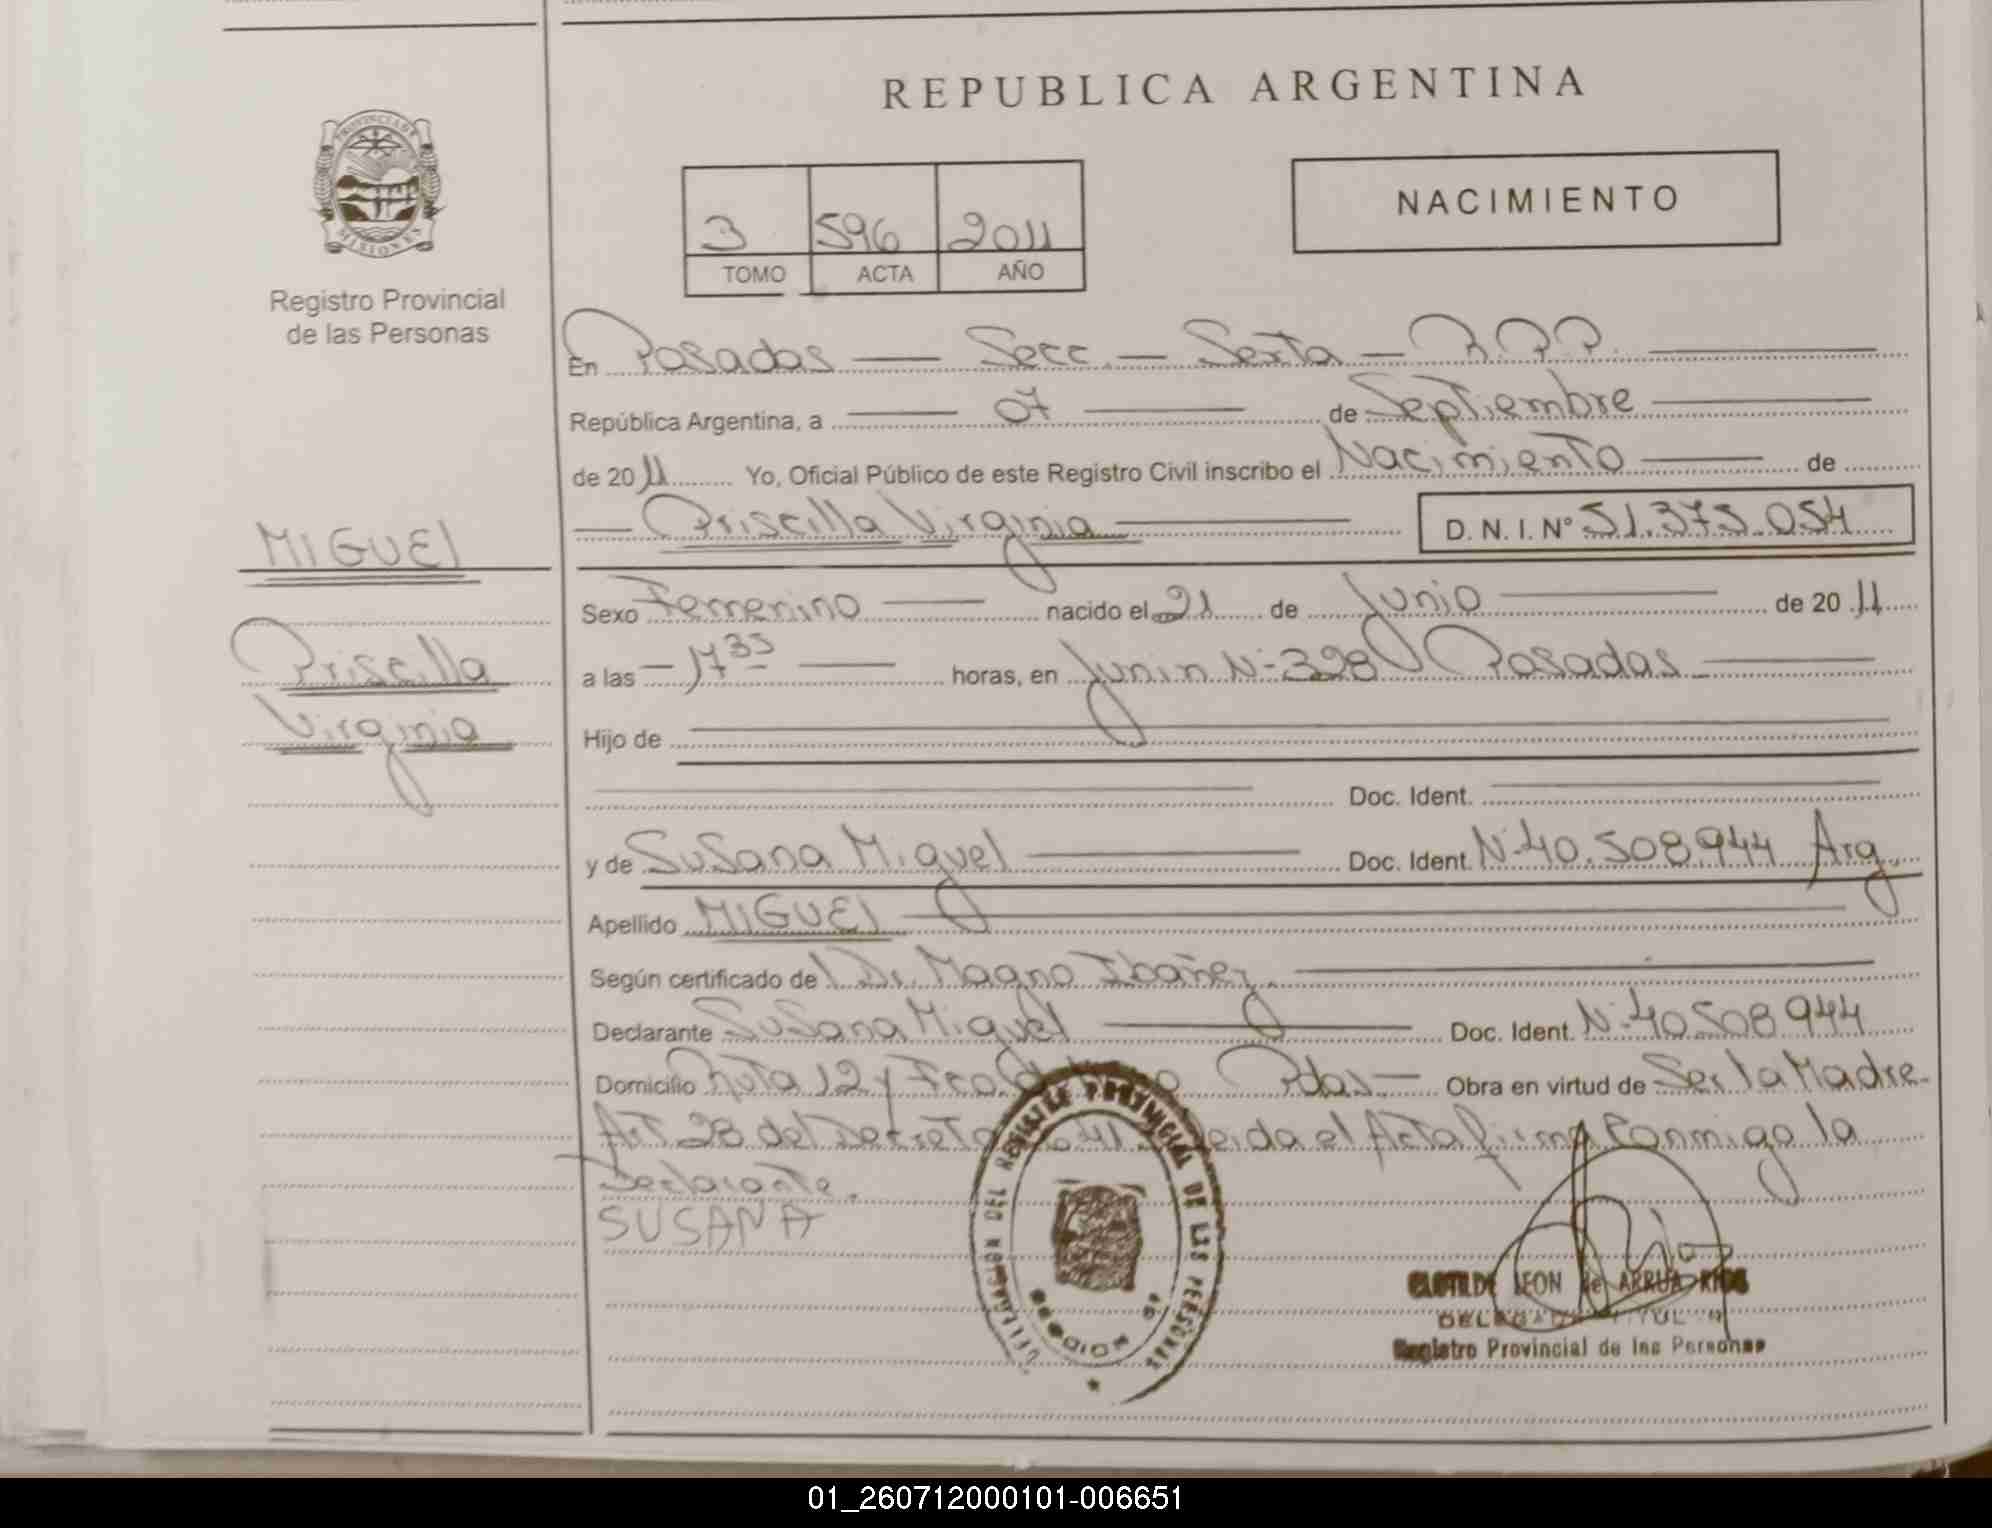 REPUBLICA ARGENTINA
PROVINCIA DE
MISIONES
Registro Provincial
de las Personas
3 596 2011
TOMO ACTA AÑO
NACIMIENTO
En Posadas — Secc. — Sexta — R.P.P.
República Argentina, a 07 de Septiembre
de 2011 Yo, Oficial Público de este Registro Civil inscribo el Nacimiento de
Priscilla Virginia D. N. I. Nº 51.375.054
MIGUEL
Priscilla
Virginia
Sexo Femenino nacido el 21 de Junio de 2011
a las 17 35 horas, en Junin N- 328 Posadas
Hijo de
Doc. Ident.
y de Susana Miguel Doc. Ident. N-40.508944 Arg.
Apellido MIGUEL
Según certificado del Dr. Magno Ibañez
Declarante Susana Miguel Doc. Ident. N-40508944
Domicilio Ruta 12 y Pdas — Obra en virtud de Ser la Madre
Art 28 del Decreto el Acta firma Conmigo la
Declarante.
SUSANA
DEL REGISTRO PROVINCIAL DE LAS PERSONAS
CLOTILDE LEON de ARRUA RIOS
Registro Provincial de las Personas
01_260712000101-006651